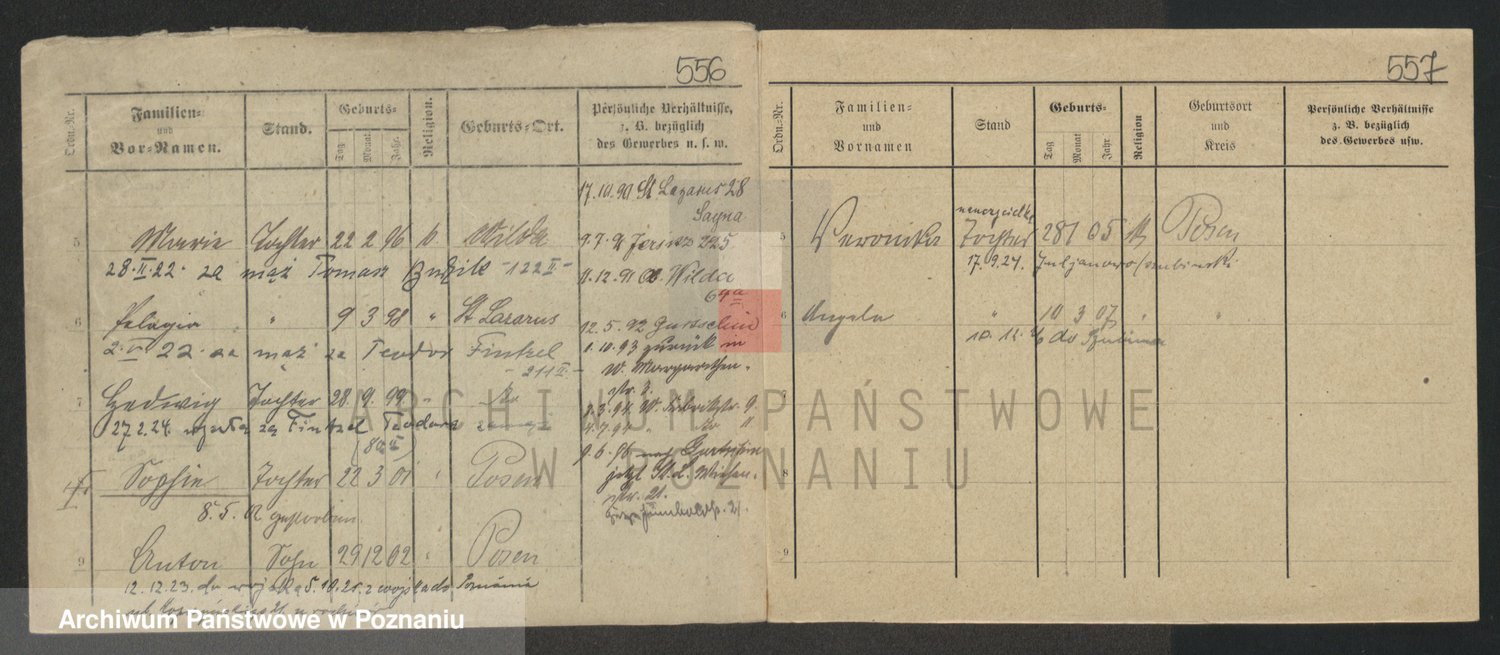 556
Ordn.-Nr.
Familien-
und
Vor-Namen.
Stand.
Geburts-
Tag
Monat
Jahr.
Religion.
Geburts-Ort.
Persönliche Verhältnisse,
z. B. bezüglich
des Gewerbes u. s. w.
17.10.90 St Lazarus 28
5 Marie Tochter 22 2 96 k Wilda
28.II.22. za mąż Tomasz -122II-
9.7.91 225
11.12.91 Wilda
6 Pelagia " 9 3 98 " St Lazarus
22. za mąż za Teodor Fintzel
-211II-
12.5.92 Gurtschin
1.10.93 zurück in
W. Margarethen-
str.
7 Hedwig Tochter 28 9 99 " do
27.2.24. za Fintzel Teodora
(80II)
1.3.94 W. Fabrikstr. 9
Sophie Tochter 22 3 01 " Posen
8.5.02 gestorben
9.6.96 nach Gurtschin
jetzt St. L. Wiesen-
str. 21.
9 Anton Sohn 29 12 02 " Posen
12.12.23. do wojska 5.10.25. z wojska do Poznania
557
Ordn.-Nr.
Familien-
und
Vornamen
Stand
Geburts-
Tag
Monat
Jahr
Religion
Geburtsort
und
Kreis
Persönliche Verhältnisse
z. B. bezüglich
des Gewerbes usw.
nauczycielka
5 Veronika Tochter 28 1 05 k Posen
17.9.24. Juljanowo
6 Angela " 10 3 07 " "
10.12. do
7
8
9
ARCHIWUM PAŃSTWOWE
W POZNANIU
Archiwum Państwowe w Poznaniu